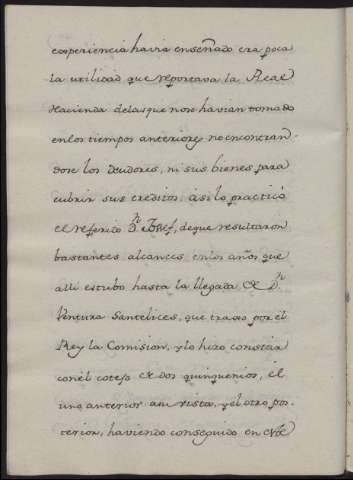 experiencia havia enseñado era poca
la utilidad que reportava la Real
Hacienda delas que no se havian tomado
en los tiempos anteriores no encontran-
dose los Deudores, ni sus bienes para
cubrir sus creditos: asi lo practicó
el referido Dn Josef, de que resultaron
bastantes alcances en los años que
alli estubo hasta la llegada de Dn
Ventura Santelices, que traxo por el
Rey la Comision, y lo hizo constar
con el cotejo de dos quinquenios, el
uno anterior a su visita, y el otro pos-
terior, haviendo conseguido en este